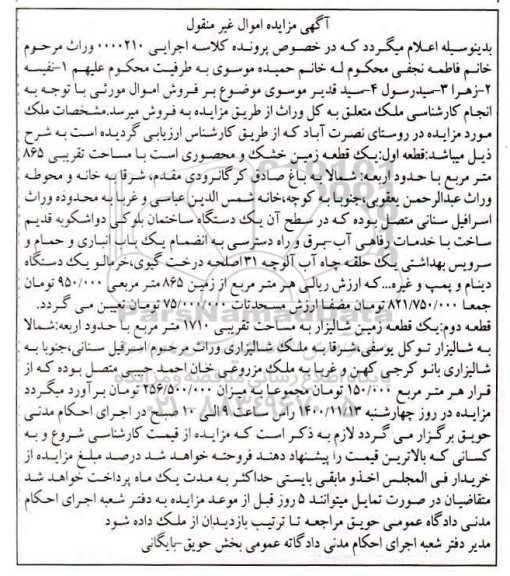 آگهی مزایده اموال غیر منقول
بدینوسیله اعلام میگردد که در خصوص پرونده کلاسه اجرایی ۰۰۰۰۲۱۰ وراث مرحوم
خانم فاطمه نجفی محکوم له خانم حمیده موسوی به طرفیت محکوم علیهم ۱-نفیسه
۲-زهرا ۳-سیدرسول ۴-سید قدیر موسوی موضوع بر فروش اموال موروثی با توجه به
انجام کارشناسی ملک متعلق به کل وراث از طریق مزایده به فروش میرسد.مشخصات ملک
مورد مزایده در روستای نصرت آباد که از طریق کارشناس ارزیابی گردیده است به شرح
ذیل میباشد:قطعه اول:یک قطعه زمین خشک و محصوری است با مساحت تقریبی ۸۶۵
متر مربع با حدود اربعه: شمالا به باغ صادق کرگانرودی مقدم، شرقا به خانه و محوطه
وراث عبدالرحمن یعقوبی،جنوبا به کوچه،خانه شمس الدین عباسی و غربا به محدوده وراث
اسرافیل سنانی متصل بوده که در سطح آن یک دستگاه ساختمان بلوکی دواشکوبه قدیم
ساخت با خدمات رفاهی آب-برق و راه دسترسی به انضمام یک باب انباری و حمام و
سرویس بهداشتی یک حلقه چاه آب آلوچه ۳۱اصلحه درخت گیوی،خرمالو یک دستگاه
دینام و پمپ و غیره...که ارزش ریالی هر متر مربع از زمین ۸۶۵ متر مربعی ۹۵۰/۰۰۰ تومان
جمعا ۸۲۱/۷۵۰/۰۰۰ تومان مضفا ارزش مسحدثات ۷۵/۰۰۰/۰۰۰ تومان تعیین می گردد.
قطعه دوم:یک قطعه زمین شالیزار به مساحت تقریبی ۱۷۱۰ متر مربع با حدود اربعه:شمالا
به شالیزار توکل یوسفی،شرقا به ملک شالیزاری وراث مرحوم اسرفیل سنانی،جنوبا به
شالیزاری بانو کرجی کهن و غربا به ملک مزروعی خان احمد حبیبی متصل بوده که از
قرار هر متر مربع ۱۵۰/۰۰۰ تومان مجموعا به میزان ۲۵۶/۵۰۰/۰۰۰ تومان بر آورد میگردد
مزایده در روز چهارشنبه ۱۴۰۰/۱۱/۱۳ راس ساعت ۹ الی ۱۰ صبح در اجرای احکام مدنی
حویق برگزار می گردد لازم به ذکر است که مزایده از قیمت کارشناسی شروع و به
کسانی که بالاترین قیمت را پیشنهاد دهند فروخته خواهد شد درصد مبلغ مزایده از
خریدار فی المجلس اخذو مابقی بایستی حداکثر به مدت یک ماه پرداخت خواهد شد
متقاضیان در صورت تمایل میتوانند ۵ روز قبل از موعد مزایده به دفتر شعبه اجرای احکام
مدنی دادگاه عمومی حویق مراجعه تا ترتیب بازدیدان از ملک داده شود
مدیر دفتر شعبه اجرای احکام مدنی دادگاته عمومی بخش حویق-بایگانی